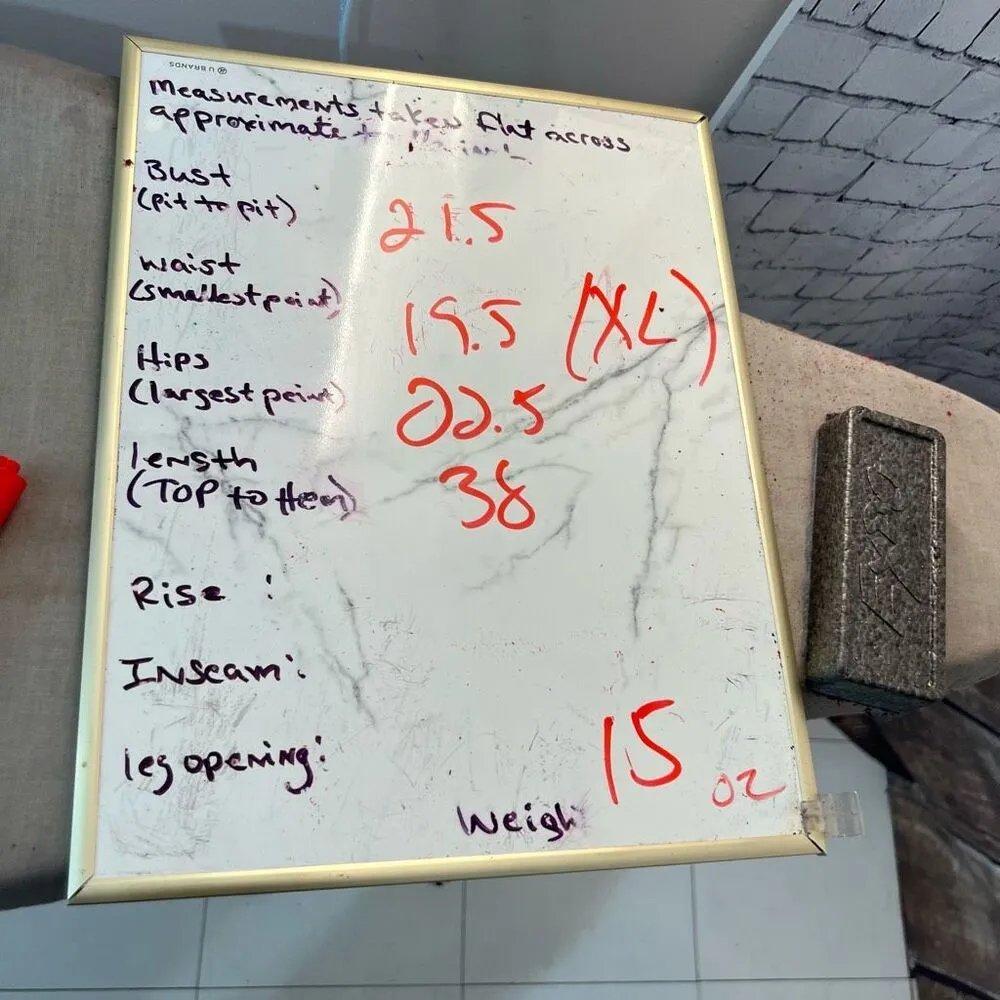 U BRANDS
Measurements taken flat across
approximate
Bust
(pit to pit) 21.5
waist
(smallest point) 19.5 (XL)
Hips
(largest point) 22.5
length
(TOP to Hem) 38
Rise :
Inseam:
leg opening:
15 oz
Weigh